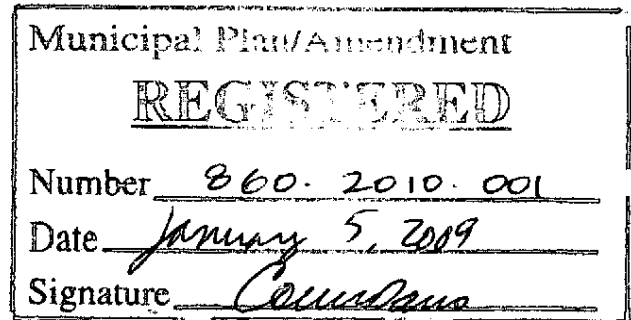 Municipal Plan/Amendment
REGISTERED
Number 860. 2010. 001
Date January 5, 2009
Signature